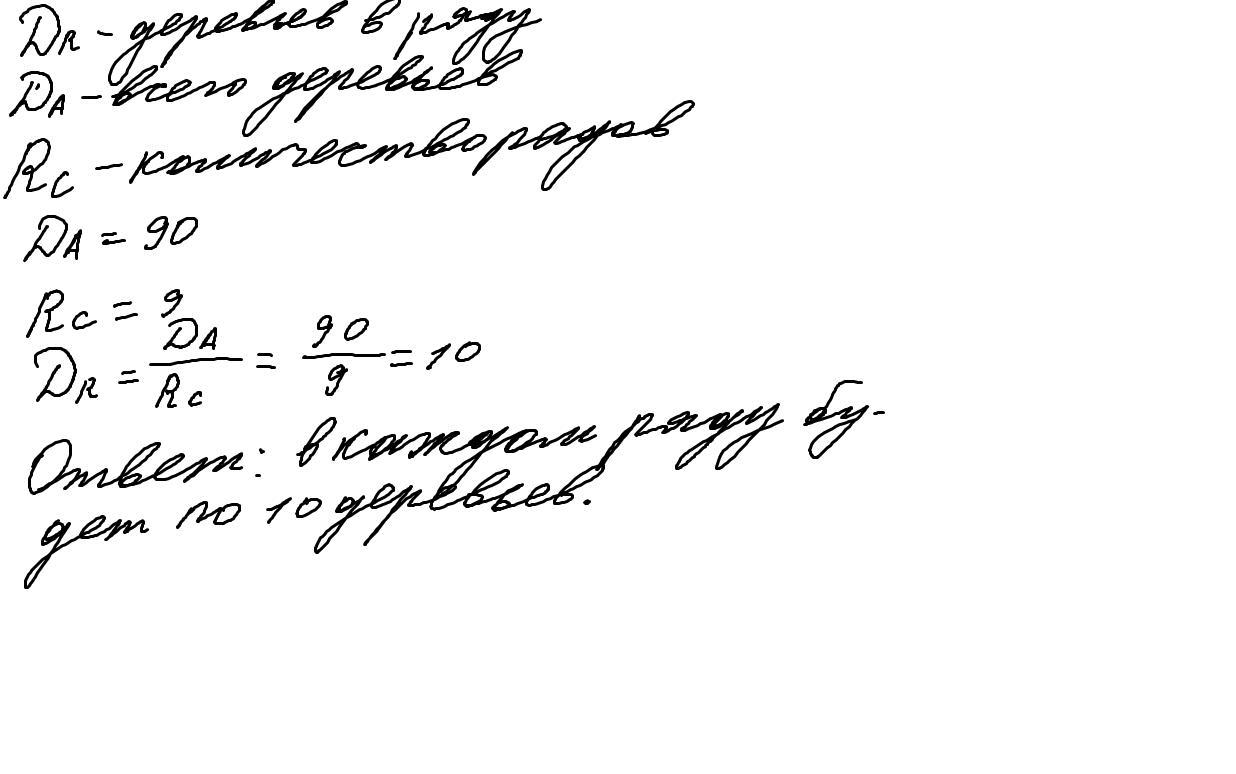 D_R - деревьев в ряду
D_A - всего деревьев
R_C - количество рядов
D_A = 90
R_C = 9
D_R = D_A / R_C = 90 / 9 = 10
Ответ: в каждом ряду бу-
дет по 10 деревьев.